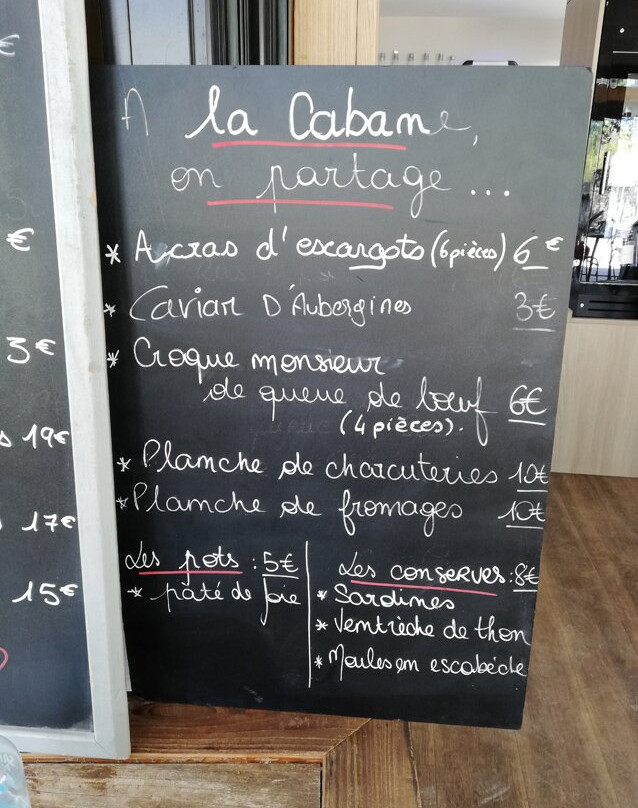 €
€
3€
19€
17€
15€
A la Cabane,
on partage...
* Acras d'escargots (6 pièces) 6€
* Caviar D'Aubergines 3€
* Croque monsieur
de queue de bœuf 6€
(4 pièces).
* Planche de charcuteries 10€
* Planche de fromages 10€
Les pots : 5€
* pâté de foie
Les conserves : 8€
* Sardines
* Ventrèche de thon
* Moules en escabèche